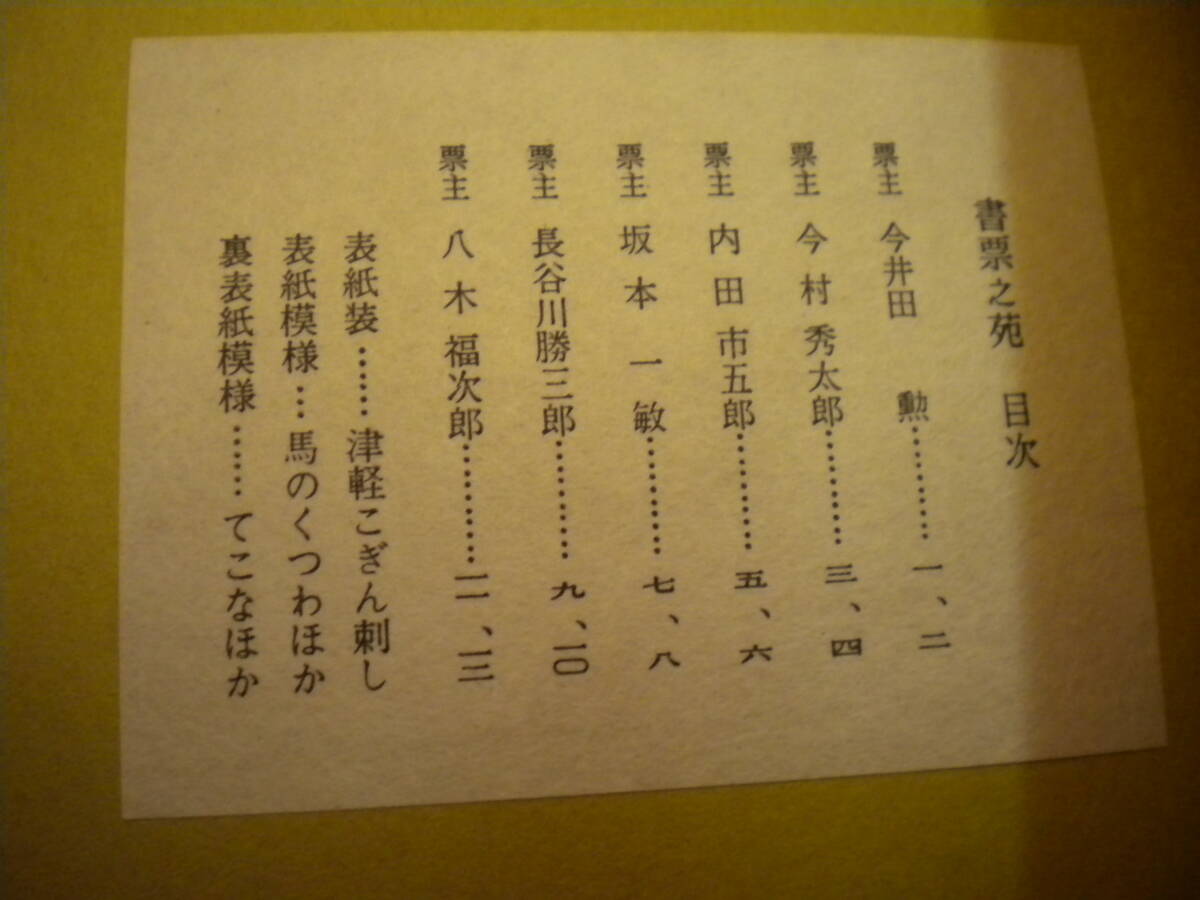 書票之苑 目次
票主 今井田 勲…………一、二
票主 今村 秀太郎…………三、四
票主 内田 市五郎…………五、六
票主 坂本 一敏…………七、八
票主 長谷川勝三郎…………九、一〇
票主 八木 福次郎…………一一、一二
表紙装……津軽こぎん刺し
表紙模様…馬のくつわほか
裏表紙模様……てこなほか